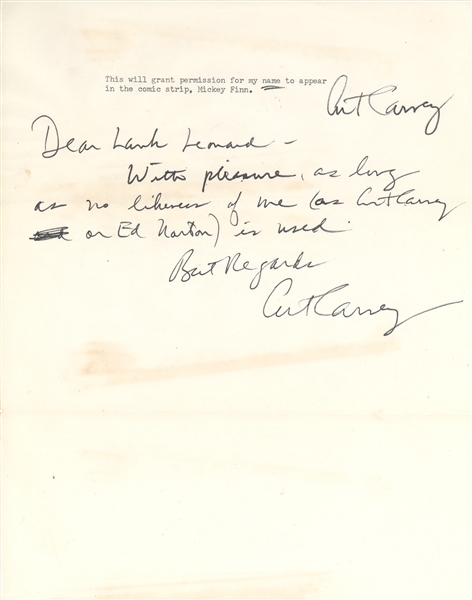 This will grant permission for my name to appear
in the comic strip, Mickey Finn.
Art Carney
Dear Lank Leonard -
With pleasure, as long
as no likeness of me (as Art Carney
or Ed Norton) is used.
Best Regards
Art Carney